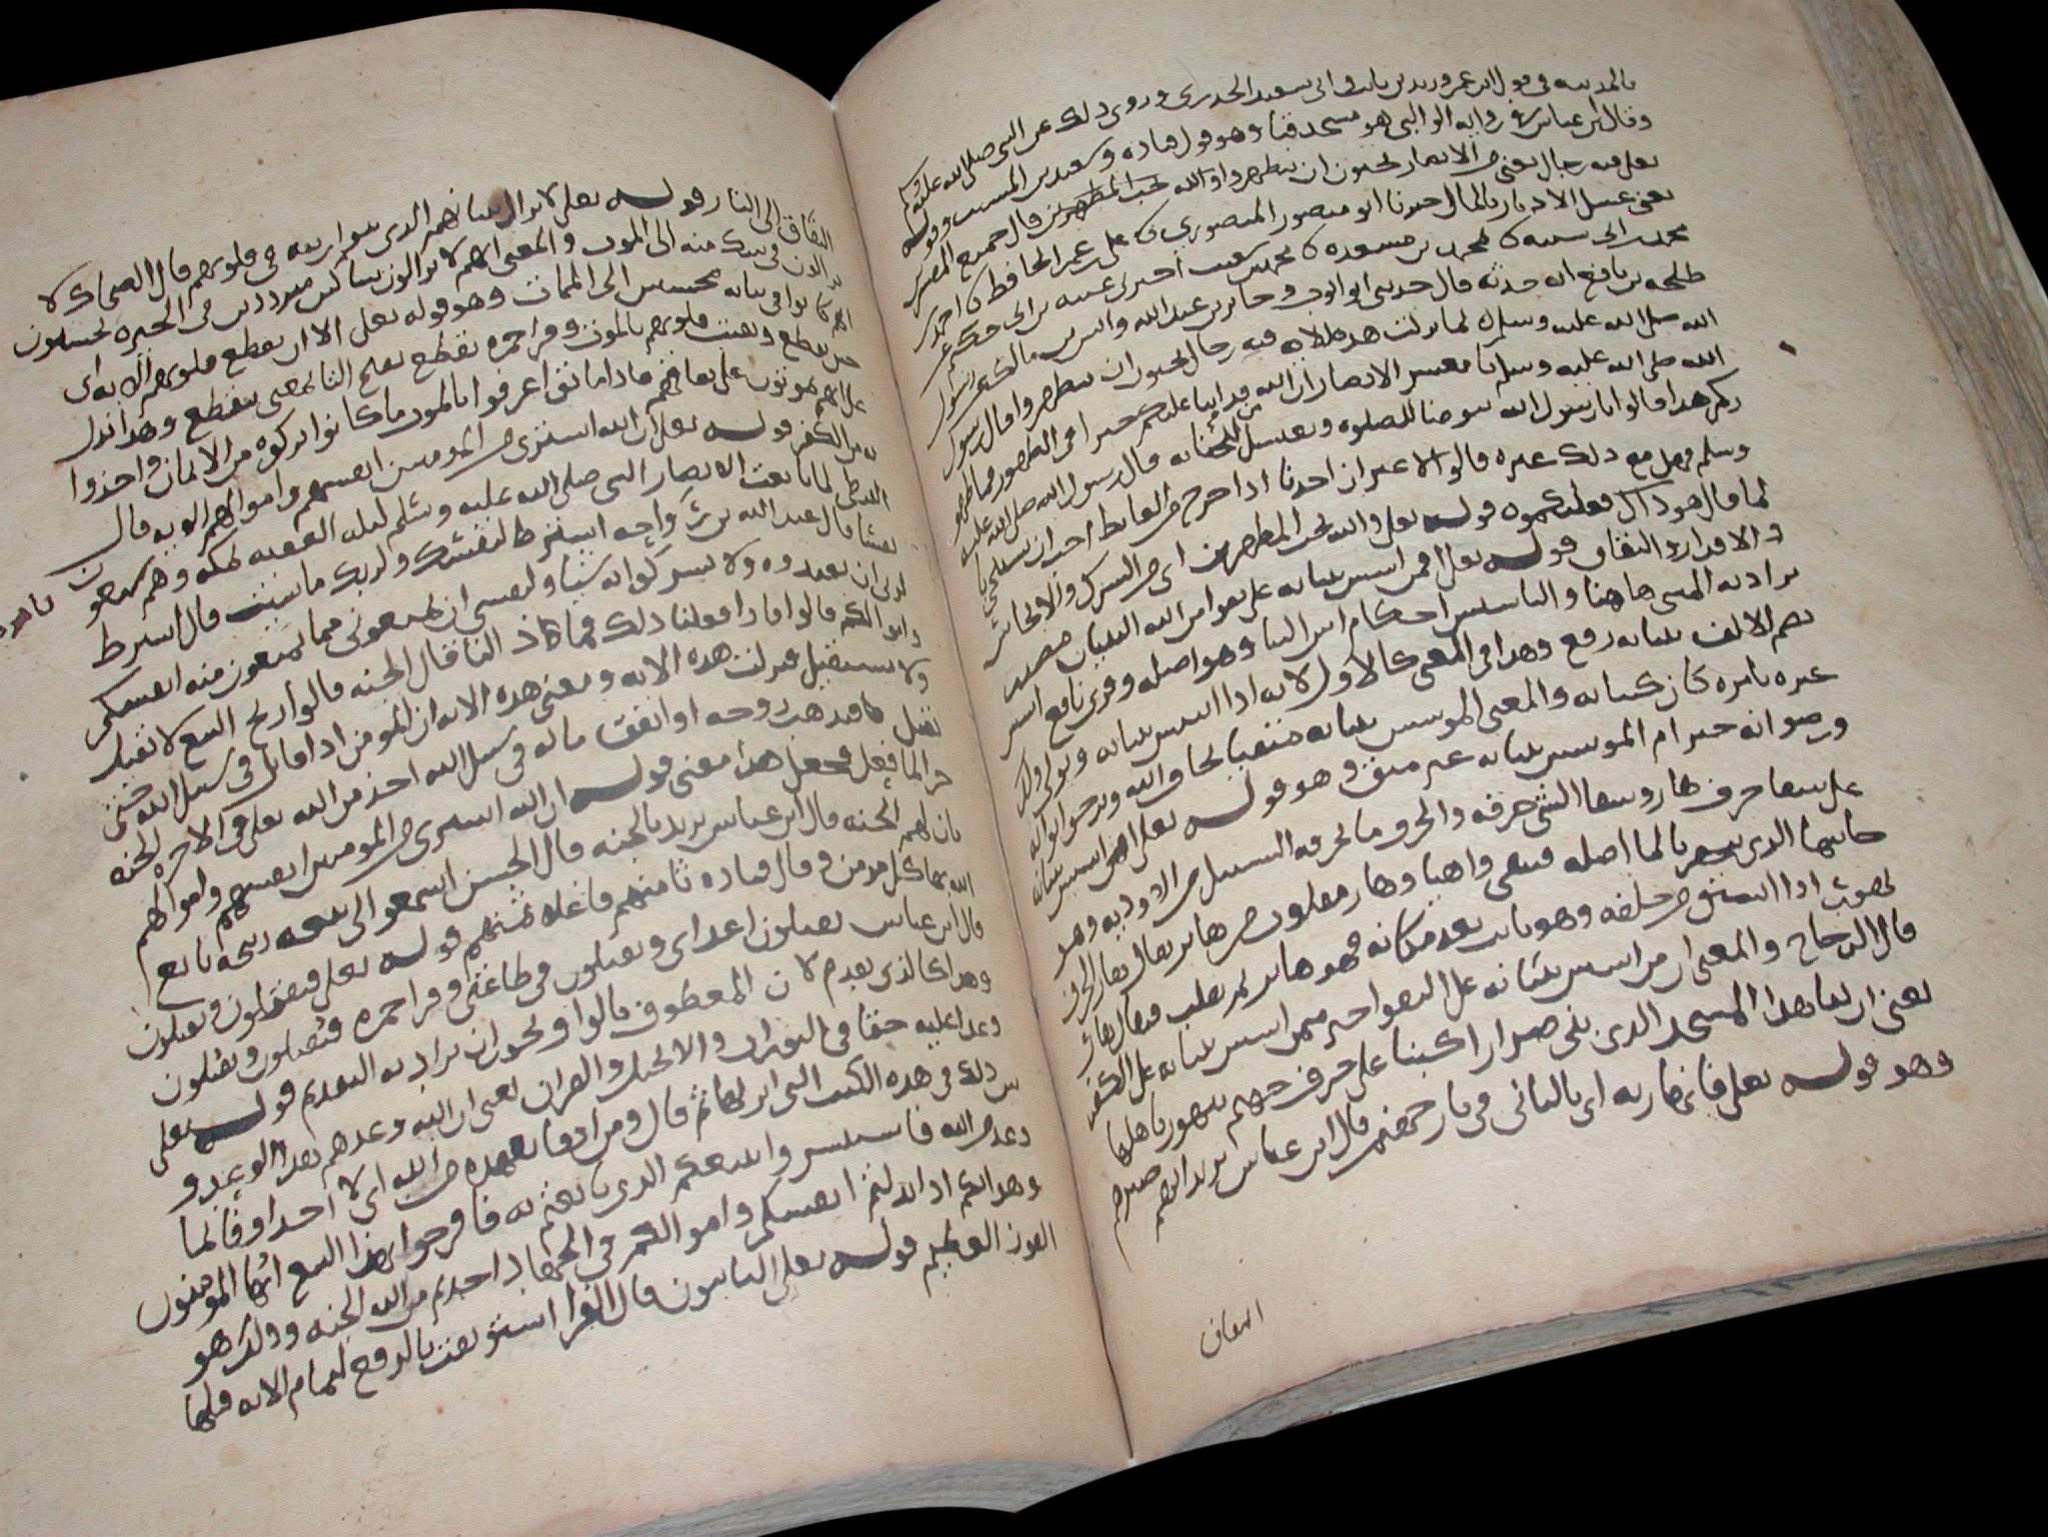 بالمدينة في قول ابن عمر وزيد بن ثابت وابي سعيد الخدري وروي ذلك عن النبي صلى الله عليه وسلم
وقال ابن عباس في رواية الوالبي هو مسجد قباء وهو قول قتادة وسعيد بن المسيب وقوله
تعلى فيه رجال يعني من الانصار يحبون ان يتطهروا والله يحب المطهرين قال جميع المفسرين
يعني غسل الادبار بالما حدثنا ابو منصور المنصوري نا علي بن عمر الحافظ نا احمد بن
محمد بن ابي شيبة نا محمد بن مسعدة نا محمد بن شعيب اخبرني عتبة بن ابي حكيم عن
طلحة بن نافع انه حدثه قال حدثني ابو ايوب وجابر بن عبد الله وانس بن مالك عن رسول
الله صلى الله عليه وسلم لما نزلت هذه الاية فيه رجال يحبون ان يتطهروا قال رسول
الله صلى الله عليه وسلم يا معشر الانصار ان الله قد اثنا عليكم خيرا في الطهور فما طهوركم
هذا قالوا يا رسول الله نتوضا للصلوة ونغتسل من الجنابة قال رسول الله صلى الله عليه
وسلم فهل مع ذلك غيره قالوا لا غير ان احدنا اذا خرج من الغايط احب ان يستنجي با
لما قال هو ذاك فعليكموه قوله تعلى والله يحب المطهرين اي من الشرك
والاقدار والنفاق قوله تعلى افمن اسس بنيانه على تقوى من الله البنيان مصدر
يراد به المبني هاهنا والتاسيس احكام اس البنا وهو اصله وقرى نافع اسس
بضم الالف بنيانه رفع وهذا في المعنى كالاول لانه اذا اسس بنيانه وتولى ذلك
غيره بامره كان كبنايه والمعنى المؤسس بنيانه متقيا يخاف الله ويرجو ثوابه
ورضوانه خير ام المؤسس بنيانه غير متق وهو قوله تعلى ام من اسس بنيانه
على شفا جرف هار وشفا الشي حرفه والجرف ما يجرفه السيل من الاودية وهو
جانبها الذي ينحفر بالما اصله فيبقى واهيا وهار مقلوب من هاير يقال هار الجرف
يهور اذا انشق من خلفه وهو ثابت بعد مكانه فهو هاير ثم يقلب فيقال هار
قال الزجاج والمعنى ان من اسس بنيانه على التقوى خير ممن اسس بنيانه على الكفر
يعني ان بنا هذا المسجد الذي بني ضرارا كبنا على جرف جهنم يتهور باهلها
وهو قوله تعلى فانهار به اي بالباني في نار جهنم قال ابن عباس يريد انهم صيرهم
النفاق
النفاق الى النار قوله تعلى لا يزال بنيانهم الذي بنوا ريبة في قلوبهم قال الضحاك لا
يزالون في شك منه الى الموت والمعنى انهم لا يزالون شاكين مترددين في الحيرة يحسبون
انهم كانوا في بنايه محسنين الى الممات وهو قوله تعلى الا ان تقطع قلوبهم الاية اي
حتى تقطع وتفتت قلوبهم بالموت وقرا حمزة تقطع بفتح التا بمعنى تتقطع وهذا يدل
على انهم يموتون على نفاقهم فاذا ماتوا عرفوا بالموت ما كانوا تركوه من الايمان واخذوا
به من الكفر قوله تعلى ان الله اشترى من المومنين انفسهم واموالهم الاية قال
القرظي لما بايعت الانصار النبي صلى الله عليه وسلم ليلة العقبة بمكة وهم سبعون
نفسا قال عبد الله بن رواحة اشترط لنفسك ولربك ما شيت قال اشترط
لربي ان تعبدوه ولا تشركوا به شيا ولنفسي ان تمنعوني مما تمنعون منه انفسكم
واموالكم قالوا فاذا فعلنا ذلك فماذا لنا قال الجنة قالوا ربح البيع لا نقيل
ولا نستقيل فنزلت هذه الاية ومعنى هذه الاية ان المومن اذا قاتل في سبيل الله حتى
يقتل فتذهب روحه او انفق ماله في سبيل الله اخذ من الله تعلى في الاخرة الجنة
جزا لما فعل فجعل هذا معنى قوله ان الله اشترى من المومنين انفسهم واموالهم
بان لهم الجنة قال ابن عباس يريد بالجنة قال الحسن اسمعوا الى بيعة ربيحة بايع
الله بها كل مومن وقال قتادة ثامنهم فاغلى ثمنهم قوله تعلى فيقتلون ويقتلون
قال ابن عباس يقتلون اعداي ويقتلون في طاعتي وقرا حمزة فيقتلون ويقتلون
وهذا كالذي تقدم لان المعطوف بالواو يجوز ان يراد به التقديم قوله تعلى
وعدا عليه حقا في التوراة والانجيل والقران يعني ان الله وعدهم هذا الوعد و
بين ذلك في هذه الكتب التي انزلها ثم قال ومن اوفا بعهده من الله اي لا احد اوفا لما
وعد من الله فاستبشروا ببيعكم الذي بايعتم به فافرحوا بهذا البيع ايها المومنون
وهو انكم اذا بذلتم انفسكم واموالكم في الجهاد اخذتم من الله الجنة وذلك هو
الفوز العظيم قوله تعلى التايبون قال الفرا استونفت بالرفع لتمام الاية قبلها